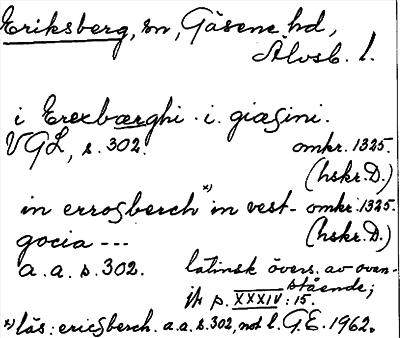 Eriksberg, sn, Gäsene hd,
Älvsb. l.
i Erexbærghi · i · giæsini.
VGL, s. 302. omkr. 1325.
(hskr. D.)
in errosberch *) in vest- omkr. 1325.
gocia --- (hskr. D.)
a. a. s. 302. latinsk övers. av ovan-
stående;
jfr p. XXXIV: 15.
*) läs: ericsberch. a. a. s. 302, not l. G.E. 1962.